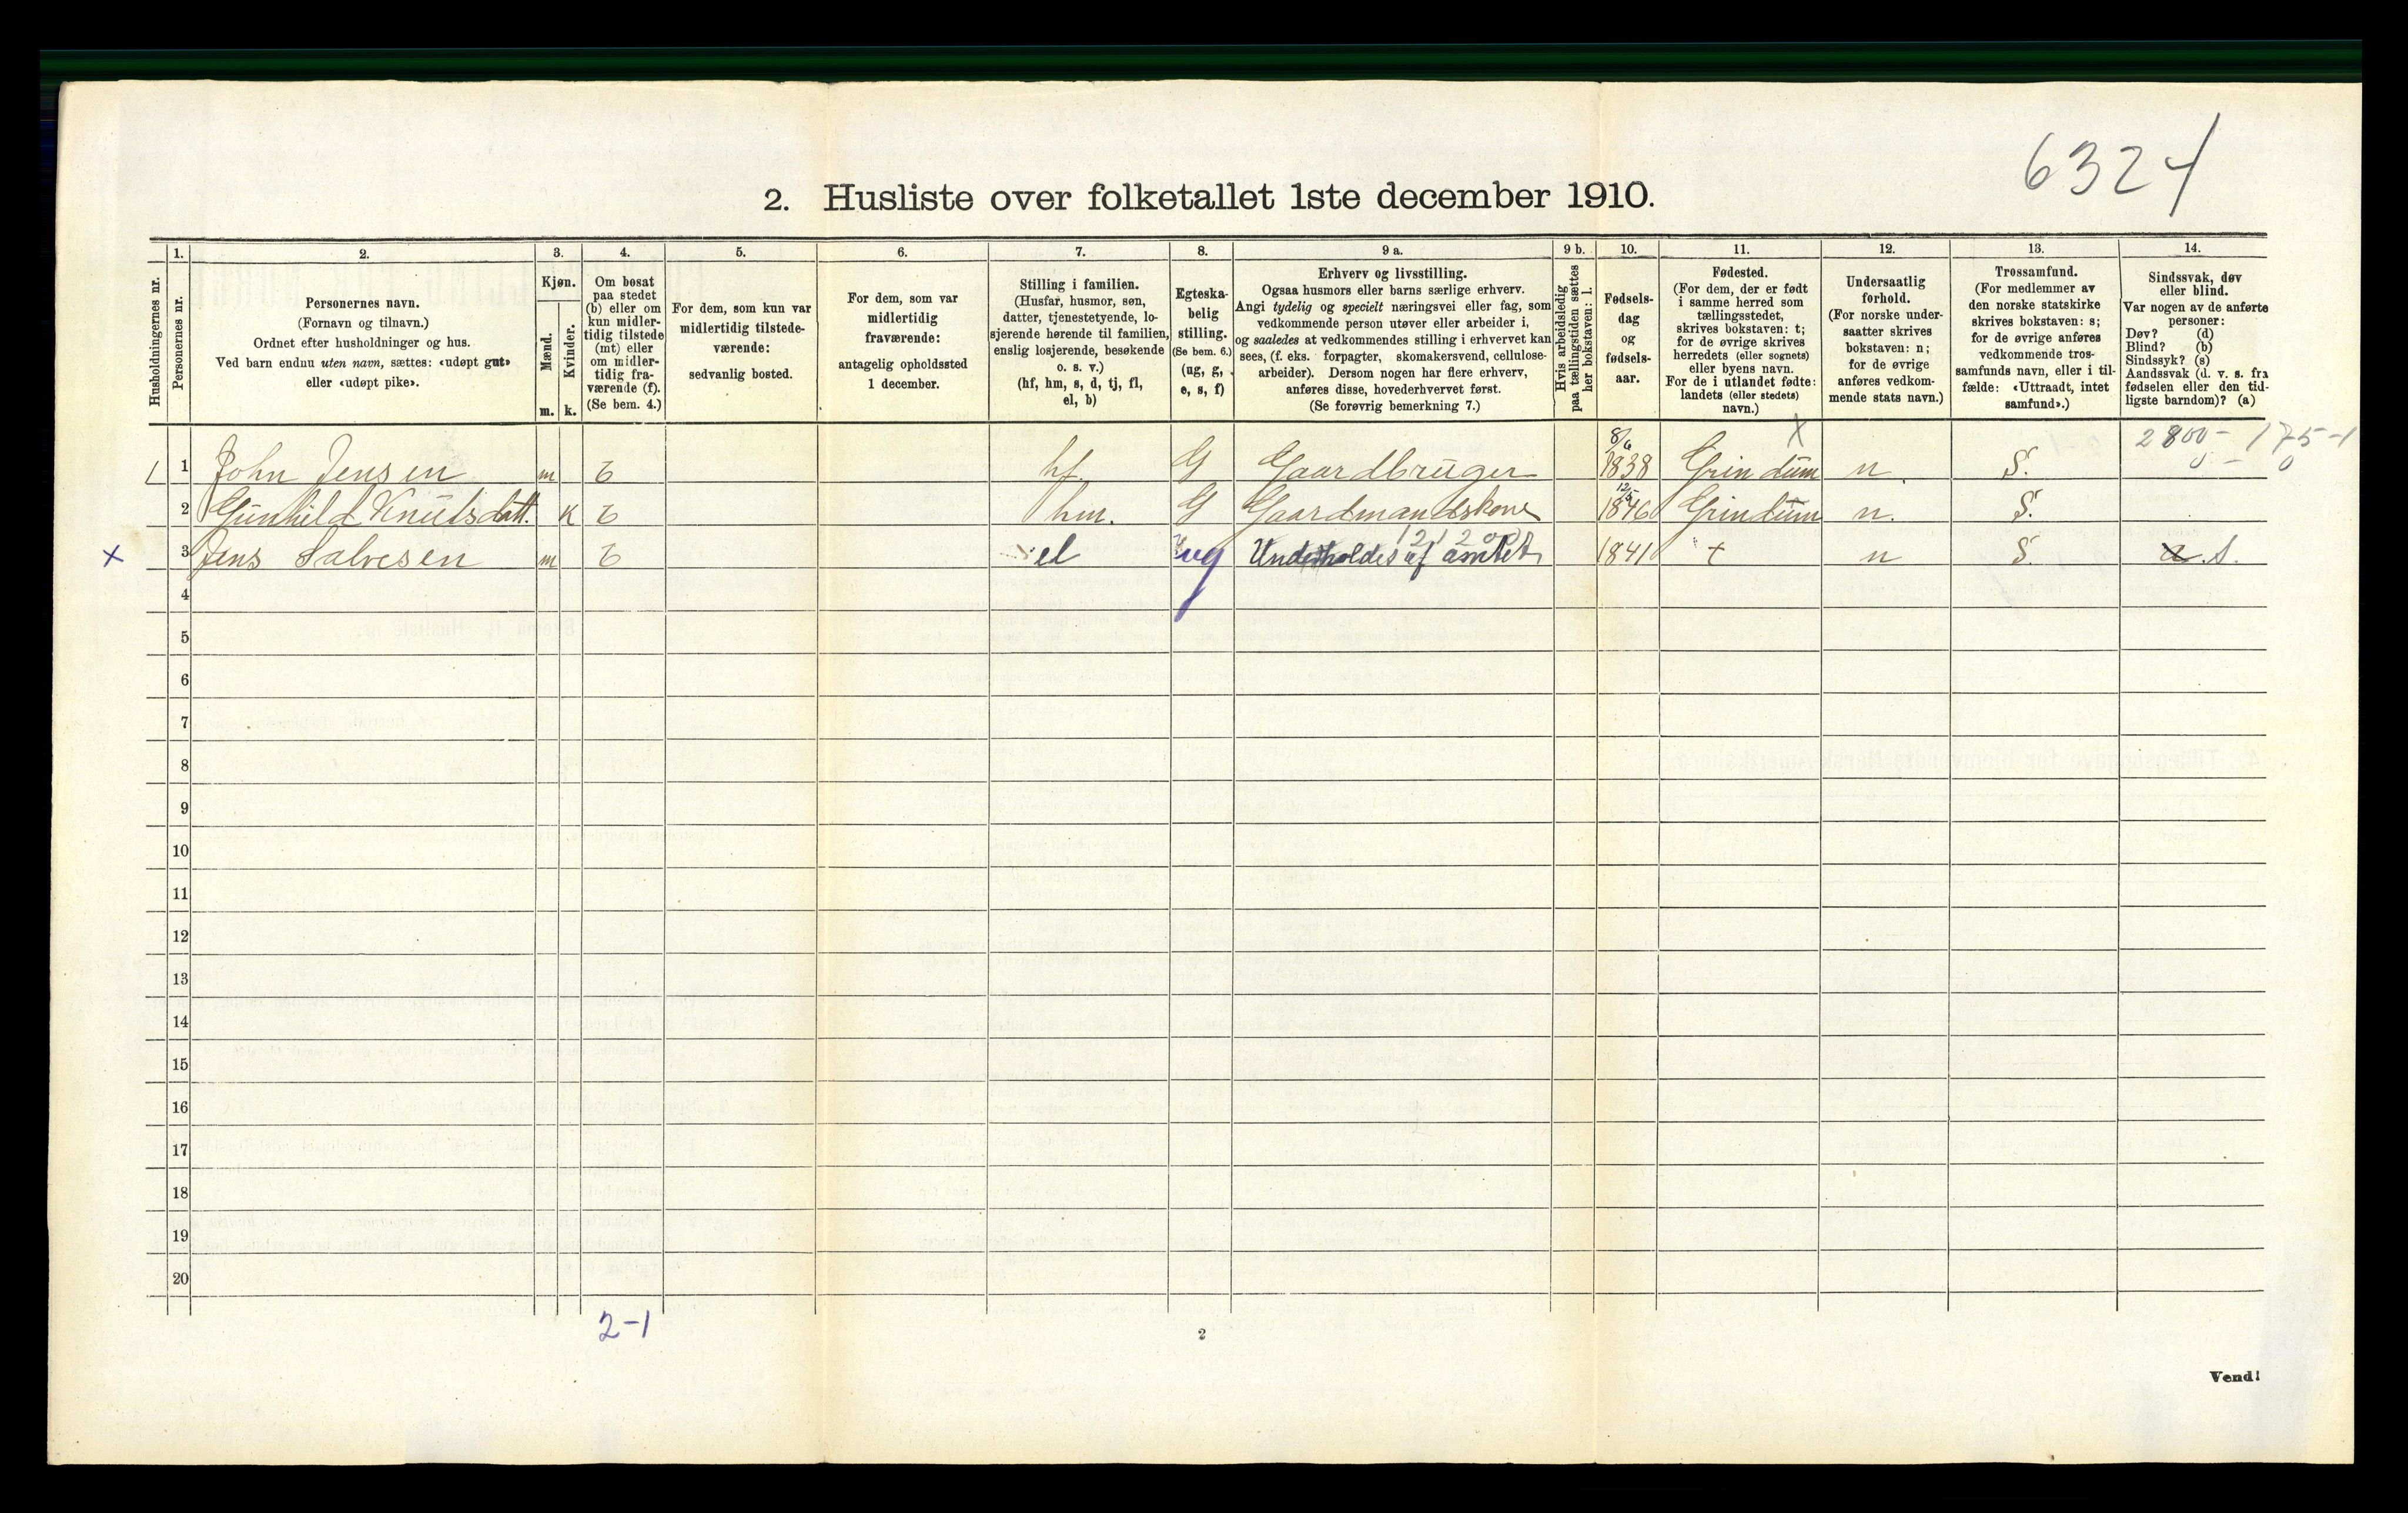 6324
2. Husliste over folketallet 1ste december 1910.
Husholdningernes nr.
1.
Personernes nr.
2.
Personernes navn.
(Fornavn og tilnavn.)
Ordnet efter husholdninger og hus.
Ved barn endnu uten navn, sættes: «udøpt gut»
eller «udøpt pike».
3.
Kjøn.
Mænd.
Kvinder.
m. k.
4.
Om bosat
paa stedet
(b) eller om
kun midler-
tidig tilstede
(mt) eller
om midler-
tidig fra-
værende (f).
(Se bem. 4.)
5.
For dem, som kun var
midlertidig tilstede-
værende:
sedvanlig bosted.
6.
For dem, som var
midlertidig
fraværende:
antagelig opholdssted
1 december.
7.
Stilling i familien.
(Husfar, husmor, søn,
datter, tjenestetyende, lo-
sjerende hørende til familien,
enslig losjerende, besøkende
o. s. v.)
(hf, hm, s, d, tj, fl,
el, b)
8.
Egteska-
belig
stilling.
(Se bem. 6.)
(ug, g,
e, s, f)
9 a.
Erhverv og livsstilling.
Ogsaa husmors eller barns særlige erhverv.
Angi tydelig og specielt næringsvei eller fag, som
vedkommende person utøver eller arbeider i,
og saaledes at vedkommendes stilling i erhvervet kan
sees, (f. eks. forpagter, skomakersvend, cellulose-
arbeider). Dersom nogen har flere erhverv,
anføres disse, hovederhvervet først.
(Se forøvrig bemerkning 7.)
9 b.
Hvis arbeidsledig
paa tællingstiden sættes
her bokstaven: l.
10.
Fødsels-
dag
og
fødsels-
aar.
11.
Fødested.
(For dem, der er født
i samme herred som
tællingsstedet,
skrives bokstaven: t;
for de øvrige skrives
herredets (eller sognets)
eller byens navn.
For de i utlandet fødte:
landets (eller stedets)
navn.)
12.
Undersaatlig
forhold.
(For norske under-
saatter skrives
bokstaven: n;
for de øvrige
anføres vedkom-
mende stats navn.)
13.
Trossamfund.
(For medlemmer av
den norske statskirke
skrives bokstaven: s;
for de øvrige anføres
vedkommende tros-
samfunds navn, eller i til-
fælde: «Uttraadt, intet
samfund».)
14.
Sindssvak, døv
eller blind.
Var nogen av de anførte
personer:
Døv? (d)
Blind? (b)
Sindssyk? (s)
Aandssvak (d. v. s. fra
fødselen eller den tid-
ligste barndom)? (a)
X 2800 - 175-1
0 - 0
1 1 John Jensen m b hf. G Gaardbruger 8/6 1838 Grindum n. S.
2 Gunhild Knutsdatt. k b hm. G Gaardmandskone 12/5 1846 Grindum n. S.
x 3 Jens Salvesen m b el ug Underholdes af amtet 1841 t n S. a. S.
4
5
6
7
8
9
10
11
12
13
14
15
16
17
18
19
20
2-1
2
Vend!